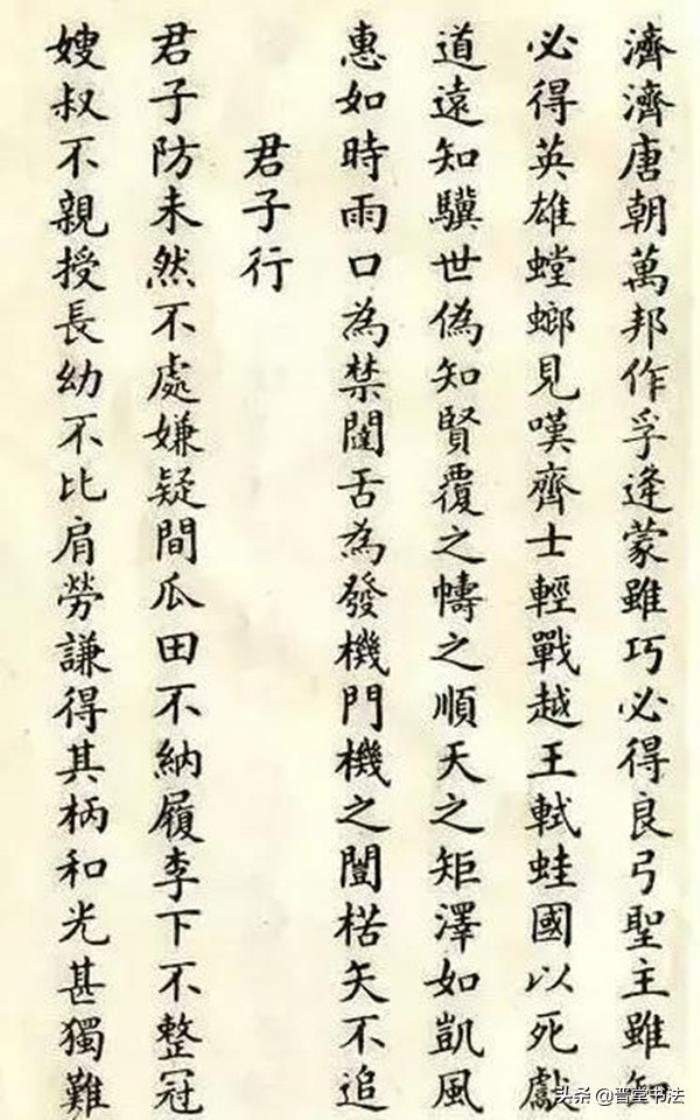 濟濟唐朝萬邦作孚逢蒙雖巧必得良弓聖主雖知
必得英雄螳螂見嘆齊士輕戰越王軾蛙國以死獻
道遠知驥世偽知賢覆之幬之順天之矩澤如凱風
惠如時雨口為禁闥舌為發機門機之闓楛矢不追
君子行
君子防未然不處嫌疑間瓜田不納履李下不整冠
嫂叔不親授長幼不比肩勞謙得其柄和光甚獨難
头条@晋堂书法